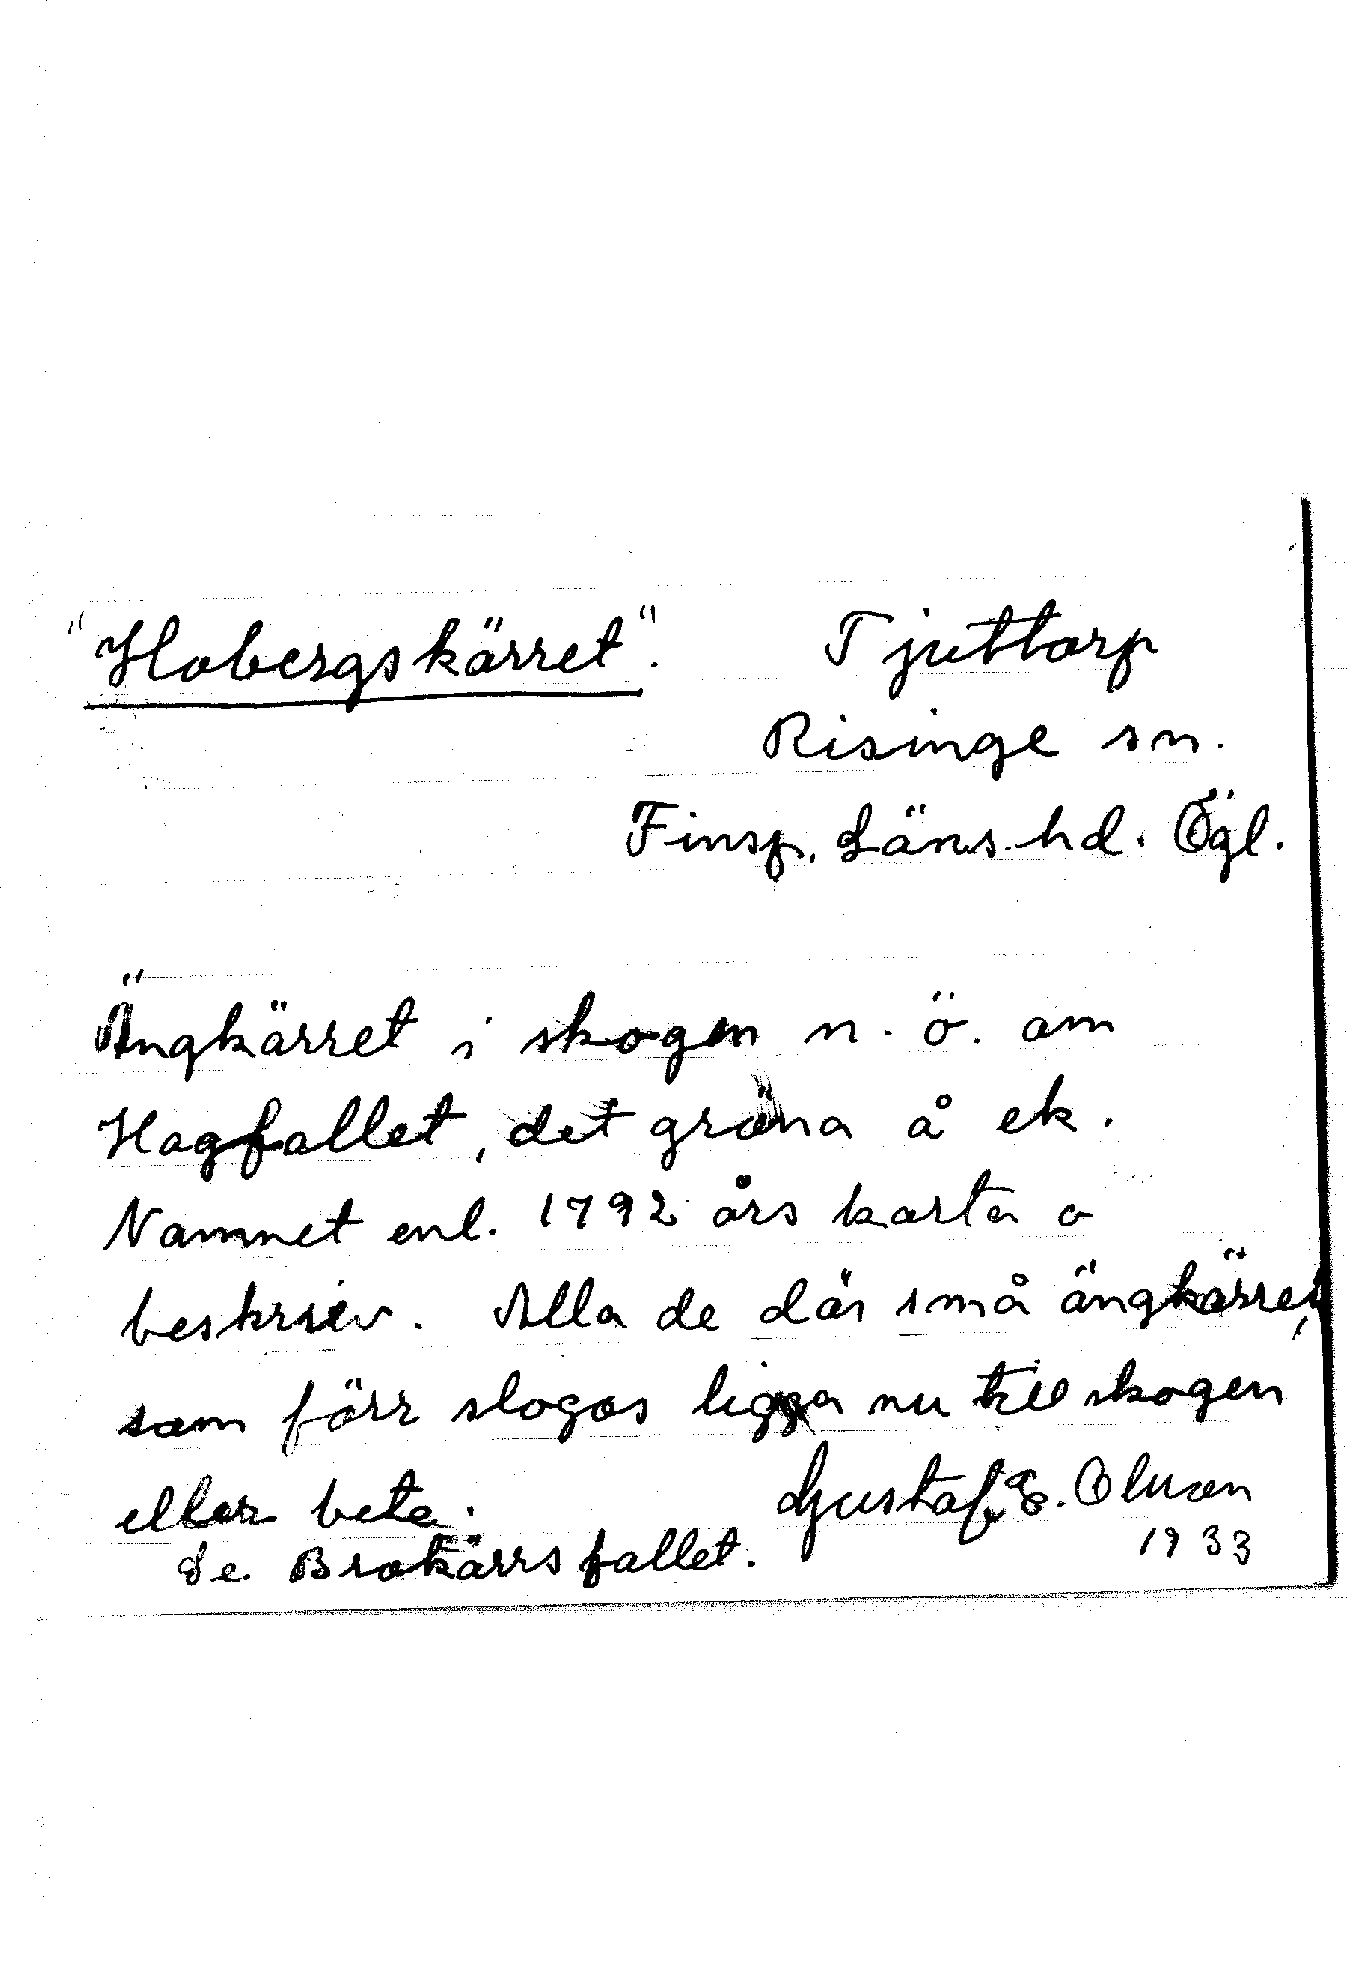 "Hobergskärret". Tjuttorp
Risinge sn.
Finsp. Läns hd. Ögl.
Ängkärret i skogen n.ö. om
Hagfallet, det gröna å ek.
Namnet enl. 1792 års karta o
beskriv. Alla de där små ängkärren,
som förr slogos ligga nu till skogen
eller bete. Gustaf E. Olsson
1933
Se Brokärrsfallet.